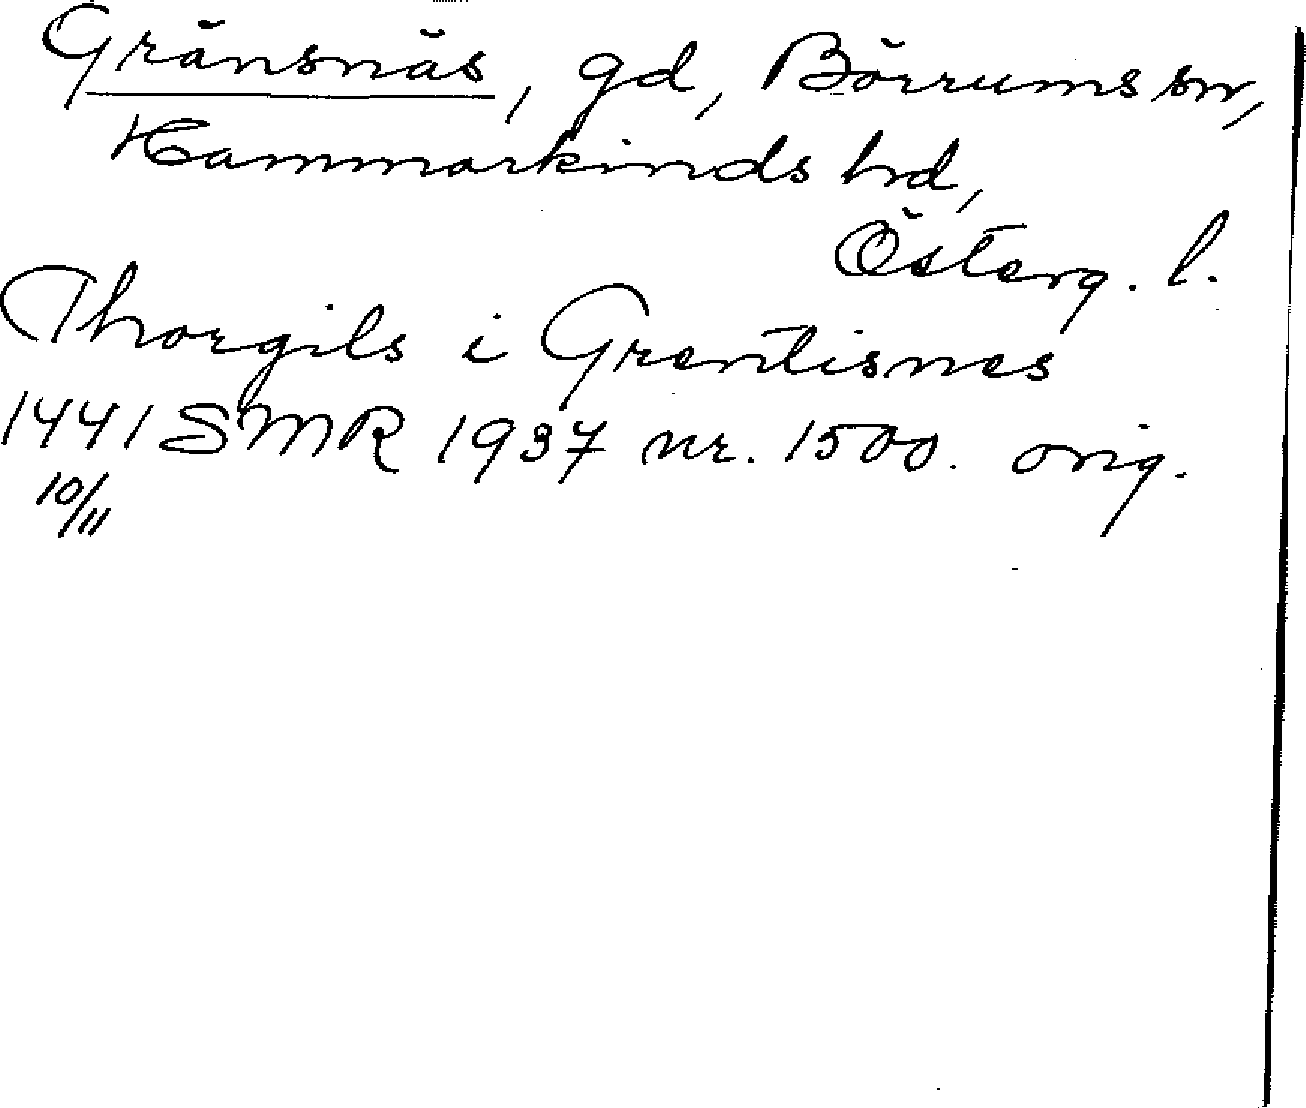 Gränsnäs, gd, Börrums sn,
Hammarkinds hd,
Österg. l.
Thorgils i Grentisnes
1441 SMR 1937 nr. 1500. orig.
10/11